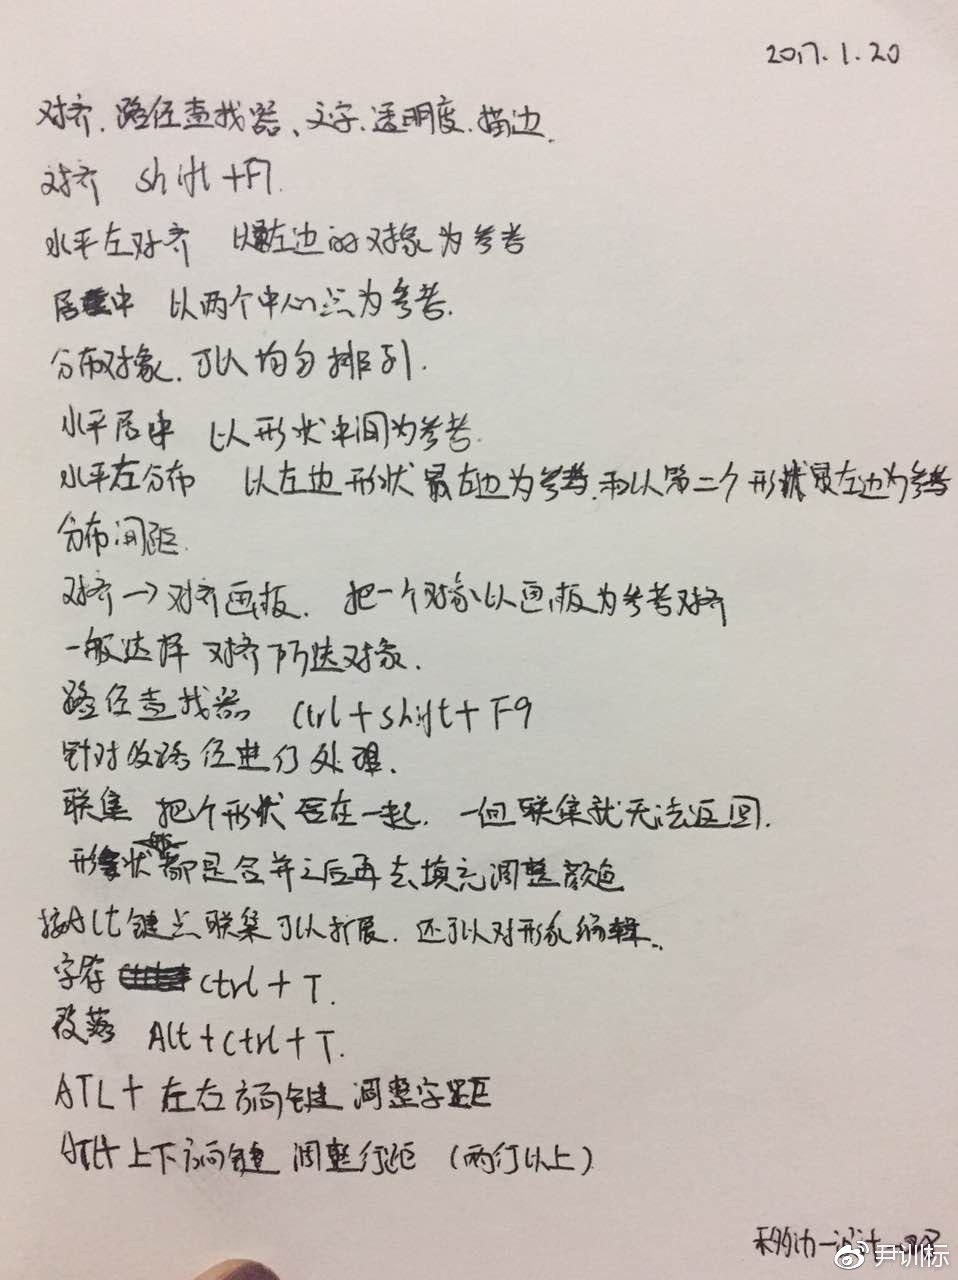 2017.1.20
对齐、路径查找器、文字、透明度、描边
对齐 shift+F7.
水平左对齐 以最左边的对象为参考
居中 以两个中心点为参考.
分布对象.可以均匀排列.
水平居中 以形状中间为参考.
水平左分布 以左边形状最左边为参考.和以第二个形状最左边为参考
分布间距.
对齐→对齐画板. 把一个对象以画板为参考对齐
一般选择 对齐所选对象.
路径查找器 Ctrl+shift+F9
针对路径进行处理.
联集 把个形状合在一起. 一但联集就无法返回.
形状都是合并之后再去填充调整颜色
按Alt键点联集可以扩展.还可以对形象编辑.
字符 Ctrl+T.
段落 Alt+Ctrl+T.
ATL+左右方向键 调整字距
ATL+上下方向键 调整行距 (两行以上)
尹训标